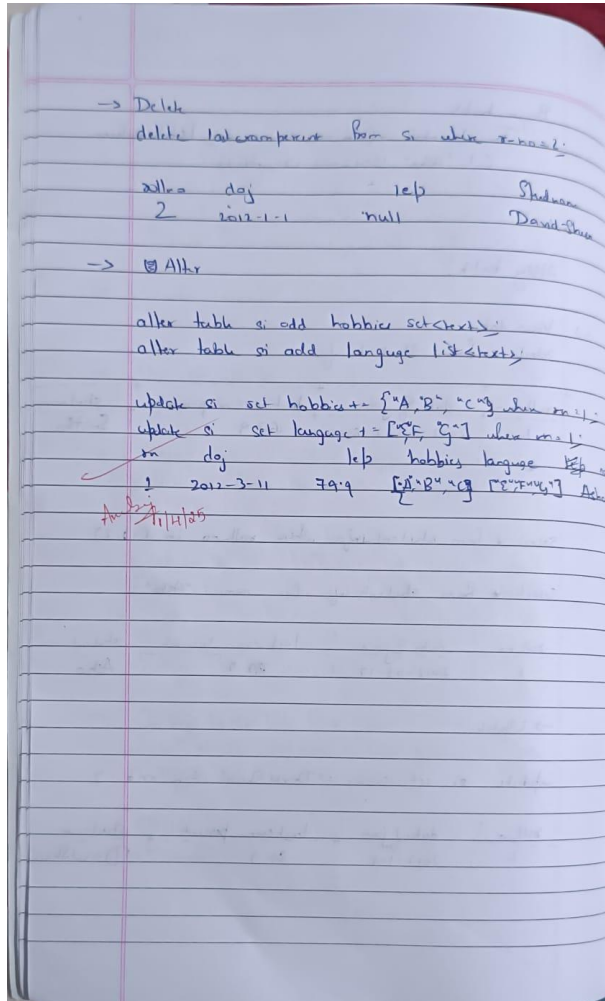 → Delete
delete lastexampercent from si where r-no=2;
rollno doj lep Studname
2 2012-1-1 null David-
→ Alter
alter table si add hobbies set<text>;
alter table si add languge list<text>;
update si set hobbies += {"A, "B", "C"} when rn=1;
update si set languge += ["E,F, "G"] when rn=1;
rn doj lep hobbies languge
1 2012-3-11 79.9 {"A","B","C"} ["E","F","G"]
1/4/25